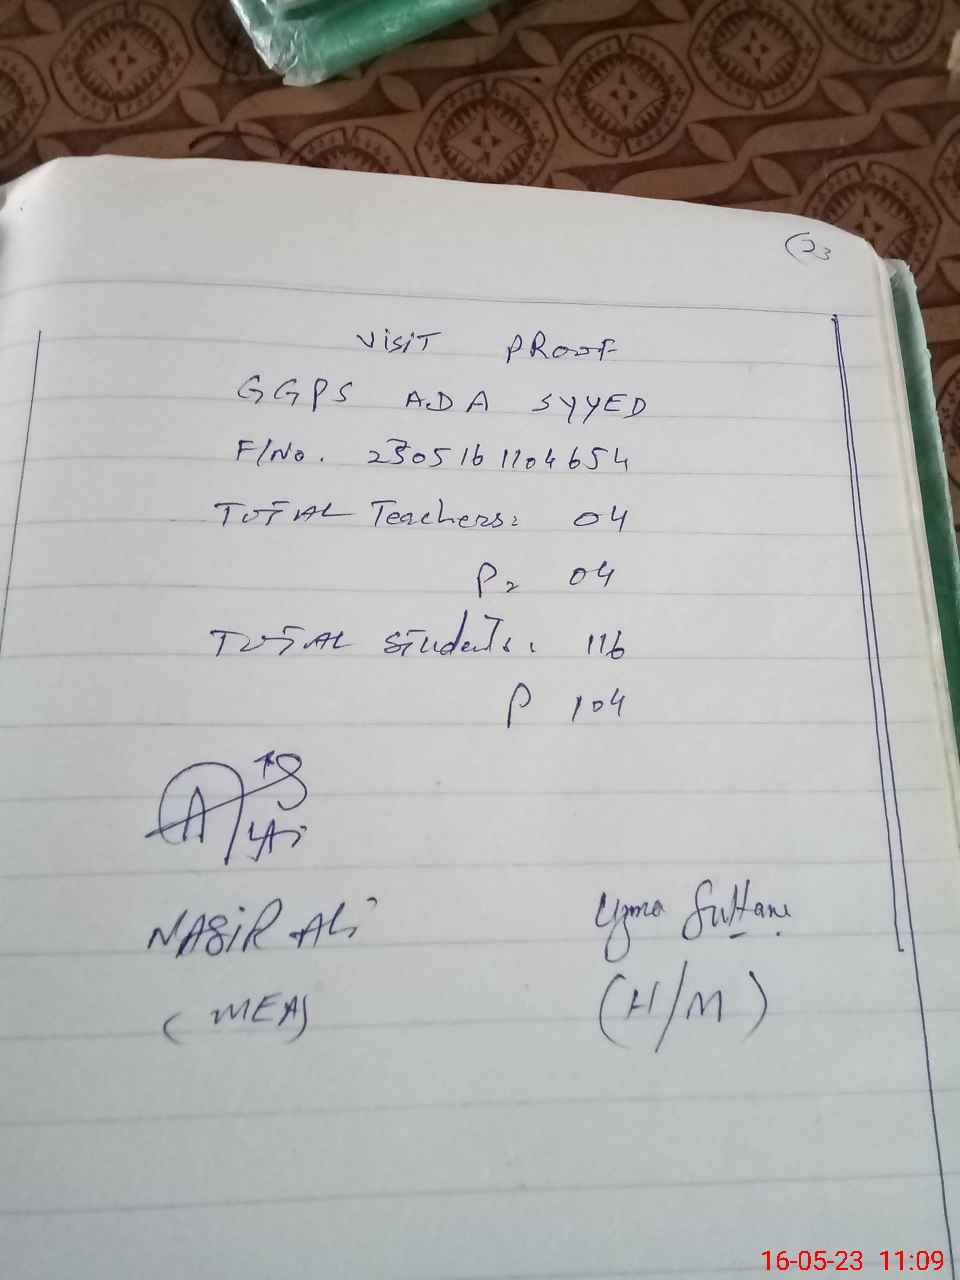 (23
VISIT PROOF
GGPS ADA SYYED
F/No. 2305161104654
TOTAL Teachers: 04
P= 04
TOTAL Students: 116
P 104
NASIR Ali
Uzma Sultana
(MEA)
(H/M)
16-05-23 11:09